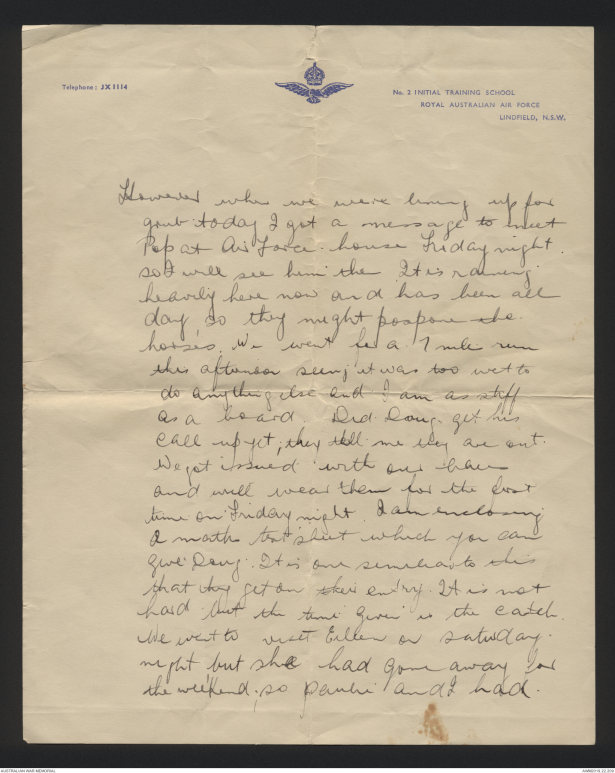 Telephone: JX 1114
No. 2 INITIAL TRAINING SCHOOL
ROYAL AUSTRALIAN AIR FORCE
LINDFIELD, N.S.W.
However when we were lining up for
grub today I got a message to meet
Pop at Air Force house Friday night.
so I will see him then It is raining
heavily here now and has been all
day so they might pospone the
horses. We went for a 7 mile run
this afternoon seeing it was too wet to
do anything else and I am as stiff
as a board. Did Doug. get his
call up yet, they tell me they are out.
We got issued with our
and will wear them for the first
time on Friday night. I am enclosing
a maths test sheet which you can
give Doug. It is one similar to this
that they get on their entry. It is not
hard but the time given is the catch.
We went to visit Eileen on saturday.
night but she had gone away for
the weekend, so and I had.
AUSTRALIAN WAR MEMORIAL